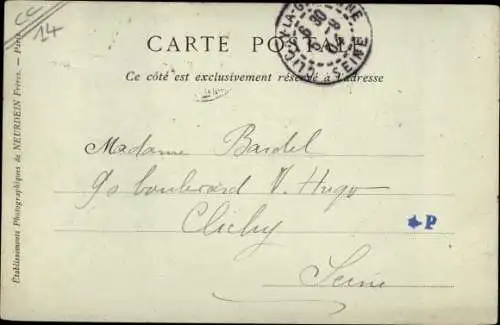 CC
14
CLICHY-LA-GARENNE
SEINE
CARTE POSTALE
Ce côté est exclusivement réservé à l'adresse
Madame Bardel
90 boulevard V. Hugo
Clichy
P
Seine
Établissements Photographiques de NEURDEIN Frères. — Paris